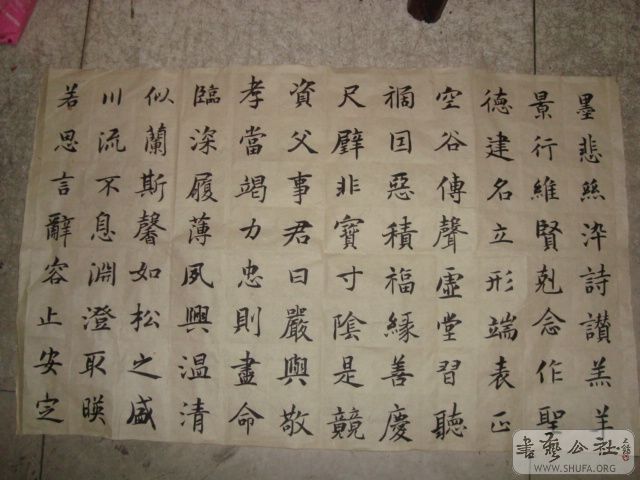 墨悲絲染詩讃羔羊
景行維賢剋念作聖
德建名立形端表正
空谷傳聲虛堂習聽
禍因惡積福緣善慶
尺璧非寶寸陰是競
資父事君曰嚴與敬
孝當竭力忠則盡命
臨深履薄夙興温清
似蘭斯馨如松之盛
川流不息淵澄取暎
若思言辭容止安定
書藝公社
WWW.SHUFA.ORG